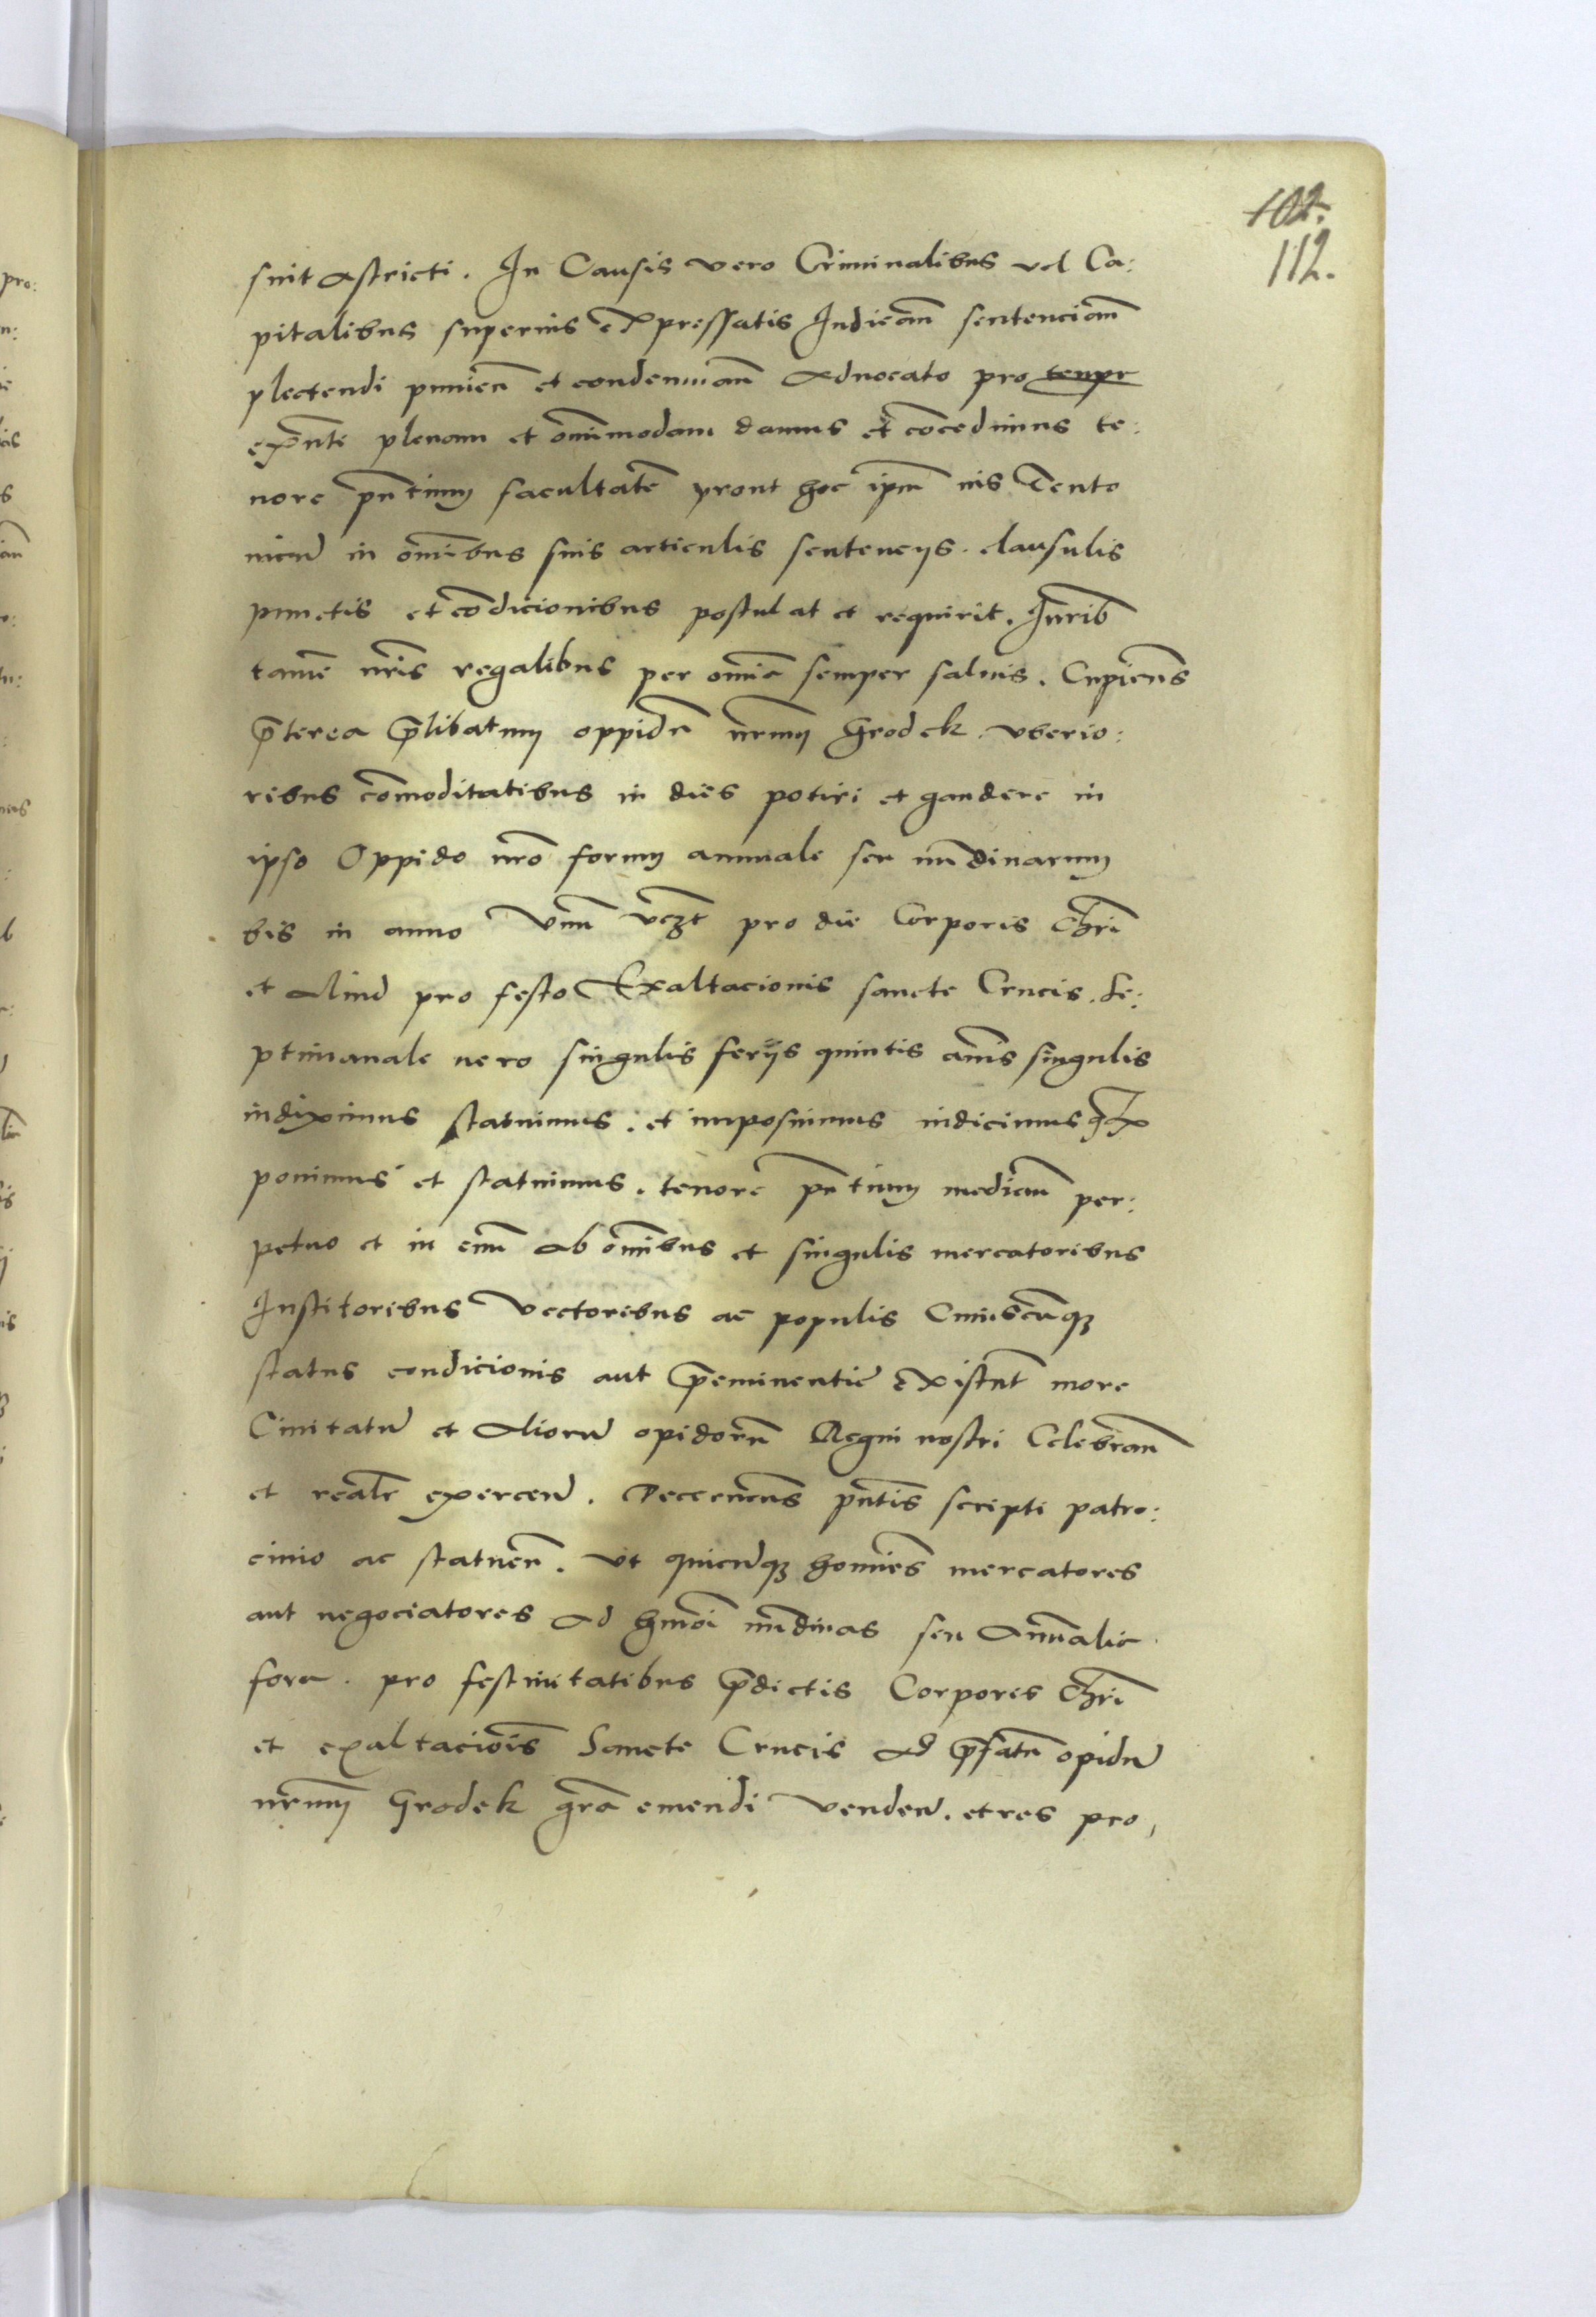 102.
112.
sint astricti. In Causis vero Criminalibus vel Ca:
pitalibus superius expressatis Iudicañ sentenciañ
plectendi punieñ et condemnañ Aduocato pro tempr
exnte plenam et omimodam damus et cocedimus te:
nore pntium facultate prout hoc ipm ius Teuto
nicu in omibus suis articulis sentencys. clausulis
punctis et codicionibus postulat et requirit. Iurib
tame nris regalibus per omia semper saluis. Cupiens
pterea plibatum oppidu nrum Grodek vberio:
ribus comoditatibus in dies potiri et gaudere in
ipso Oppido nro forum annuale seu nundinarum
bis in anno Vnu vczt pro die Corporis Chri
et Aliud pro festo Exaltacionis sancte Crucis. Se:
ptimanale uero singulis ferijs quintis annis singulis
indiximus statuimus. et imposuimus indicimus Ex
ponimus et statuimus. tenore pntium medicañ per:
petuo et in euu Ab omibus et singulis mercatoribus
Institoribus Vectoribus ac populis Cuiuscuqz
status condicionis aut preminentie existnt more
Ciuitatu et Alioru opidoru Regni nostri Celebrañ
et realr exerceñ. Decernens pntis scripti patro:
cinio ac statueñ. Vt quicuqz homines mercatores
aut negociatores Ad hmoi nundinas seu Annalia
fora. pro festiuitatibus pdictis Corporis Chri
et exaltaciois Sancte Crucis Ad pfatu opidu
nrum Grodek gra emendi Vendeñ. et res pro,